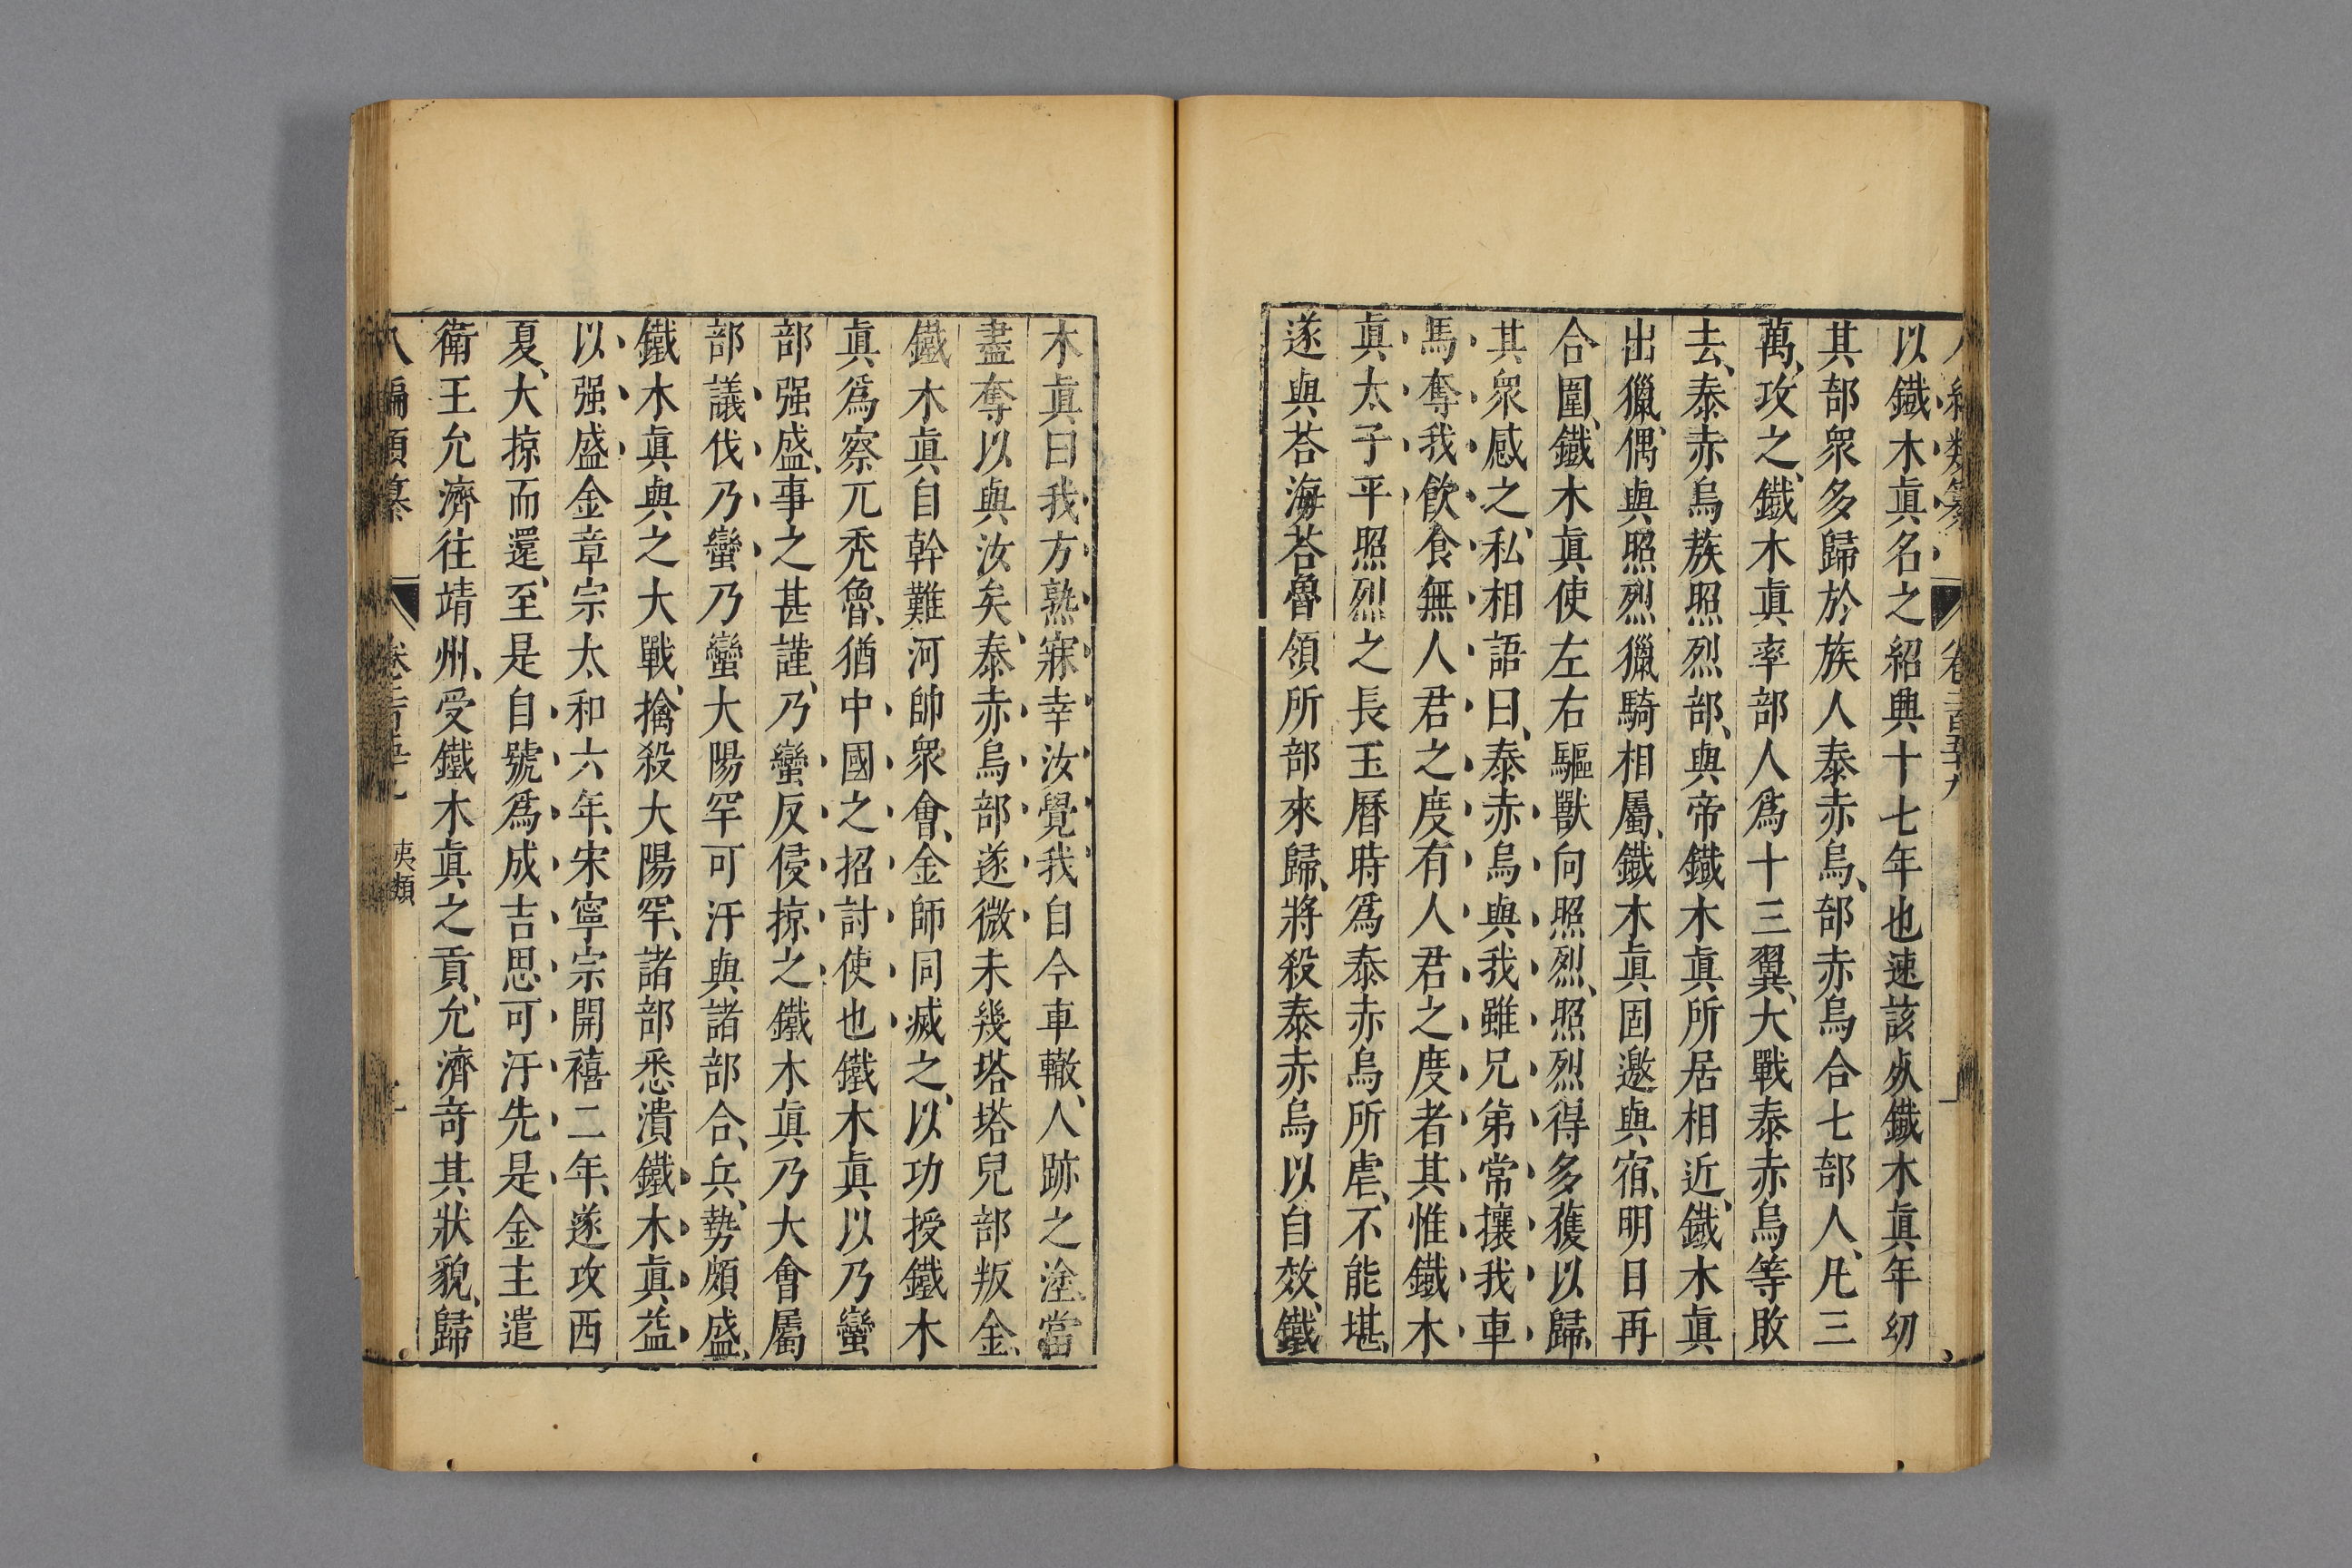 以鐵木眞名之紹興十七年也速該死鐵木眞年幼
其部衆多歸於族人泰赤烏、部赤烏合七部人、凡三
萬、攻之、鐵木眞率部人爲十三翼、大戰泰赤烏等敗
去、泰赤烏族照烈部、與帝鐵木眞所居相近、鐵木眞
出獵、偶與照烈獵騎相屬、鐵木眞固邀與宿、明日再
合圍、鐵木眞使左右驅獸向照烈、照烈得多獲以歸、
其衆感之、私相語曰、泰赤烏與我雖兄弟常攘我車
馬奪我飲食無人君之度有人君之度者其惟鐵木
眞太子乎照烈之長玉曆時爲泰赤烏所虐、不能堪、
遂與荅海荅魯領所部來歸、將殺泰赤烏以自效、鐵
木眞曰我方熟寐幸汝覺我自今車轍、人跡之塗、當
盡奪以與汝矣、泰赤烏部遂微未幾塔塔兒部叛金、
鐵木眞自幹難河帥衆會、金師同滅之、以功授鐵木
眞爲察兀禿魯、猶中國之招討使也鐵木眞以乃蠻
部强盛、事之甚謹、乃蠻反侵掠之鐵木眞乃大會屬
部議伐乃蠻乃蠻大陽罕可汗與諸部合、兵、勢頗盛、
鐵木眞與之大戰、擒殺大陽罕、諸部悉潰鐵木眞益
以强盛金章宗太和六年、宋寧宗開禧二年、遂攻西
夏、大掠而還、至是自號爲成吉思可汗先是金主遣
衛王允濟往靖州、受鐵木眞之貢、允濟奇其狀貌、歸
八編類纂 卷二百五十九 夷類